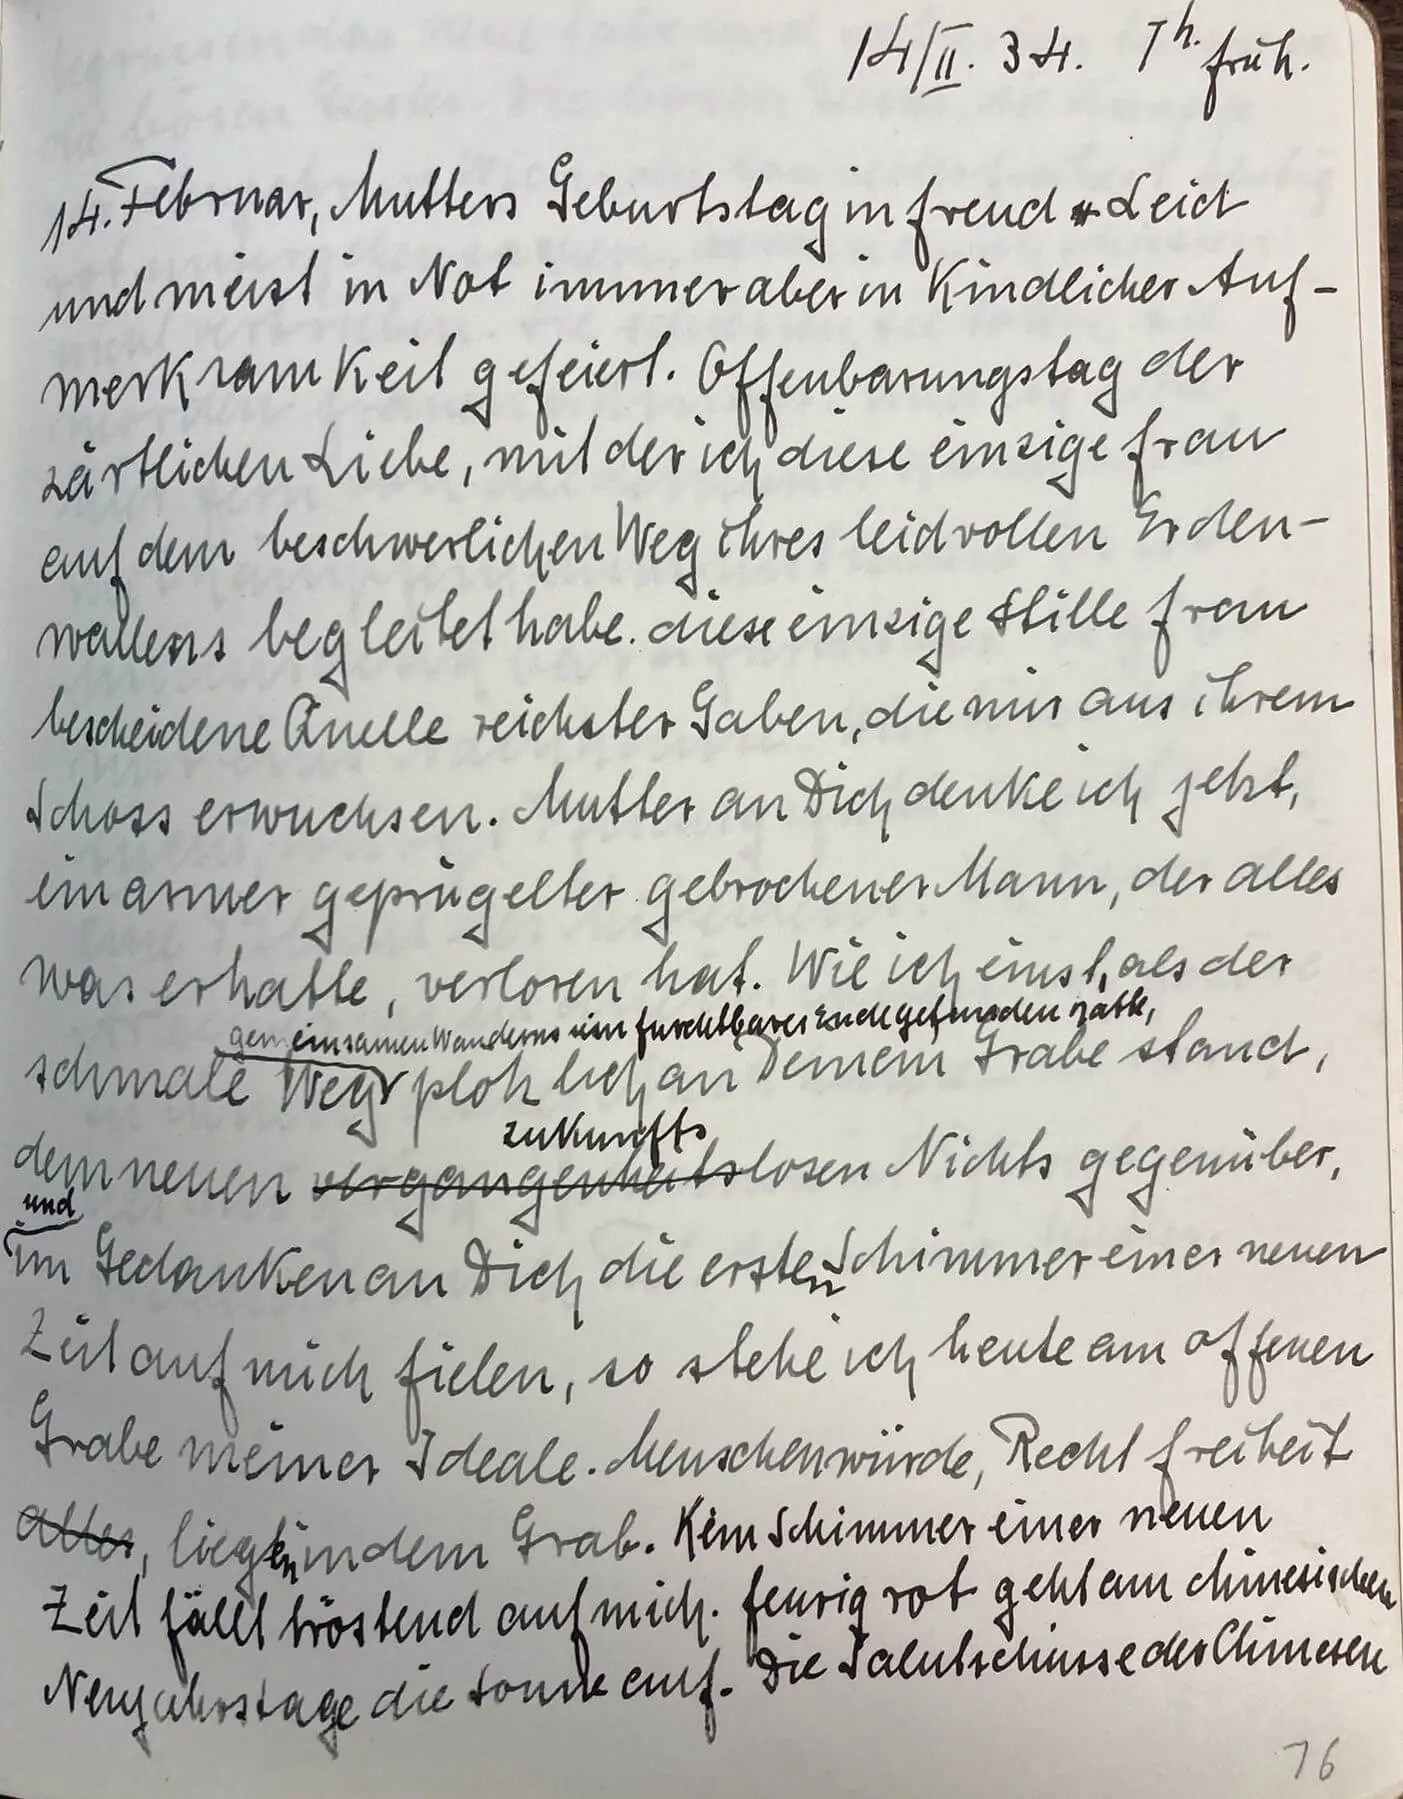 14/II. 34. 7h. früh.
14. Februar, Mutters Geburtstag in Freud u Leid
und meist in Not immer aber in Kindlicher Auf-
merksamkeit gefeiert. Offenbarungstag der
zärtlichen Liebe, mit der ich diese einzige Frau
auf dem beschwerlichen Weg ihres leidvollen Erden-
wallens begleitet habe. diese einzige stille Frau
bescheidene Quelle reichster Gaben, die mir aus ihrem
Schoss erwuchsen. Mutter an Dich denke ich jetzt,
ein armer geprügelter gebrochener Mann, der alles
was er hatte, verloren hat. Wie ich einst, als der
gemeinsamen Wanderns ein furchtbares Ende gefunden hatte,
schmale Weg plötzlich an Deinem Grabe stand,
zukunfts
dem neuen vergangenheitslosen Nichts gegenüber,
und
im Gedanken an Dich die ersten Schimmer einer neuen
Zeit auf mich fielen, so stehe ich heute am offenen
Grabe meiner Ideale. Menschenwürde, Recht Freiheit
alles, liegen in dem Grab. Kein Schimmer einer neuen
Zeit fällt tröstend auf mich. Feurig rot geht am chinesischen
Neujahrstage die Sonne auf. Die Salutschüsse der Chinesen
76